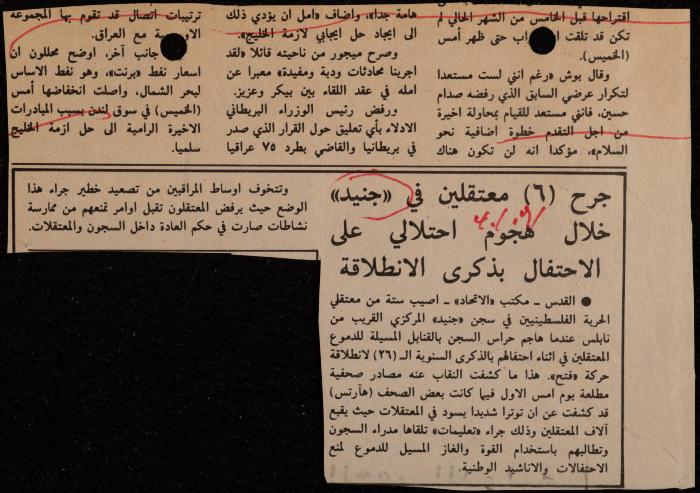 اقتراحها قبل الخامس من الشهر الحالي لم
تكن قد تلقت اب حتى ظهر أمس
(الخميس).
وقال بوش «رغم انني لست مستعدا
لتكرار عرضي السابق الذي رفضه صدام
حسين، فانني مستعد للقيام بمحاولة اخيرة
من اجل التقدم خطوة اضافية نحو
السلام»، مؤكدا انه لن تكون هناك
هامة جدا»، واضاف «امل ان يؤدي ذلك
الى ايجاد حل ايجابي لازمة الخليج».
وصرح ميجور من ناحيته قائلا «لقد
اجرينا محادثات ودية ومفيدة» معبرا عن
امله في عقد اللقاء بين بيكر وعزيز.
ورفض رئيس الوزراء البريطاني
الادلاء بأي تعليق حول القرار الذي صدر
في بريطانيا والقاضي بطرد ٧٥ عراقيا
ترتيبات اتصال قد تقوم بها المجموعة
الاو ية مع العراق.
جانب آخر، اوضح محللون ان
اسعار نفط «برنت»، وهو نفط الاساس
لبحر الشمال، واصلت انخفاضها أمس
(الخميس) في سوق لندن بسبب المبادرات
الاخيرة الرامية الى حل ازمة الخليج
سلميا.
جرح (٦) معتقلين في «جنيد»
خلال هجوم احتلالي على
الاحتفال بذكرى الانطلاقة
● القدس – مكتب «الاتحاد» – اصيب ستة من معتقلي
الحرية الفلسطينيين في سجن «جنيد» المركزي القريب من
نابلس عندما هاجم حراس السجن بالقنابل المسيلة للدموع
المعتقلين في اثناء احتفالهم بالذكرى السنوية الـ (٢٦) لانطلاقة
حركة «فتح». هذا ما كشفت النقاب عنه مصادر صحفية
مطلعة يوم امس الاول فيما كانت بعض الصحف (هآرتس)
قد كشفت عن ان توترا شديدا يسود في المعتقلات حيث يقبع
آلاف المعتقلين وذلك جراء «تعليمات» تلقاها مدراء السجون
وتطالبهم باستخدام القوة والغاز المسيل للدموع لمنع
الاحتفالات والاناشيد الوطنية.
وتتخوف اوساط المراقبين من تصعيد خطير جراء هذا
الوضع حيث يرفض المعتقلون تقبل اوامر تمنعهم من ممارسة
نشاطات صارت في حكم العادة داخل السجون والمعتقلات.